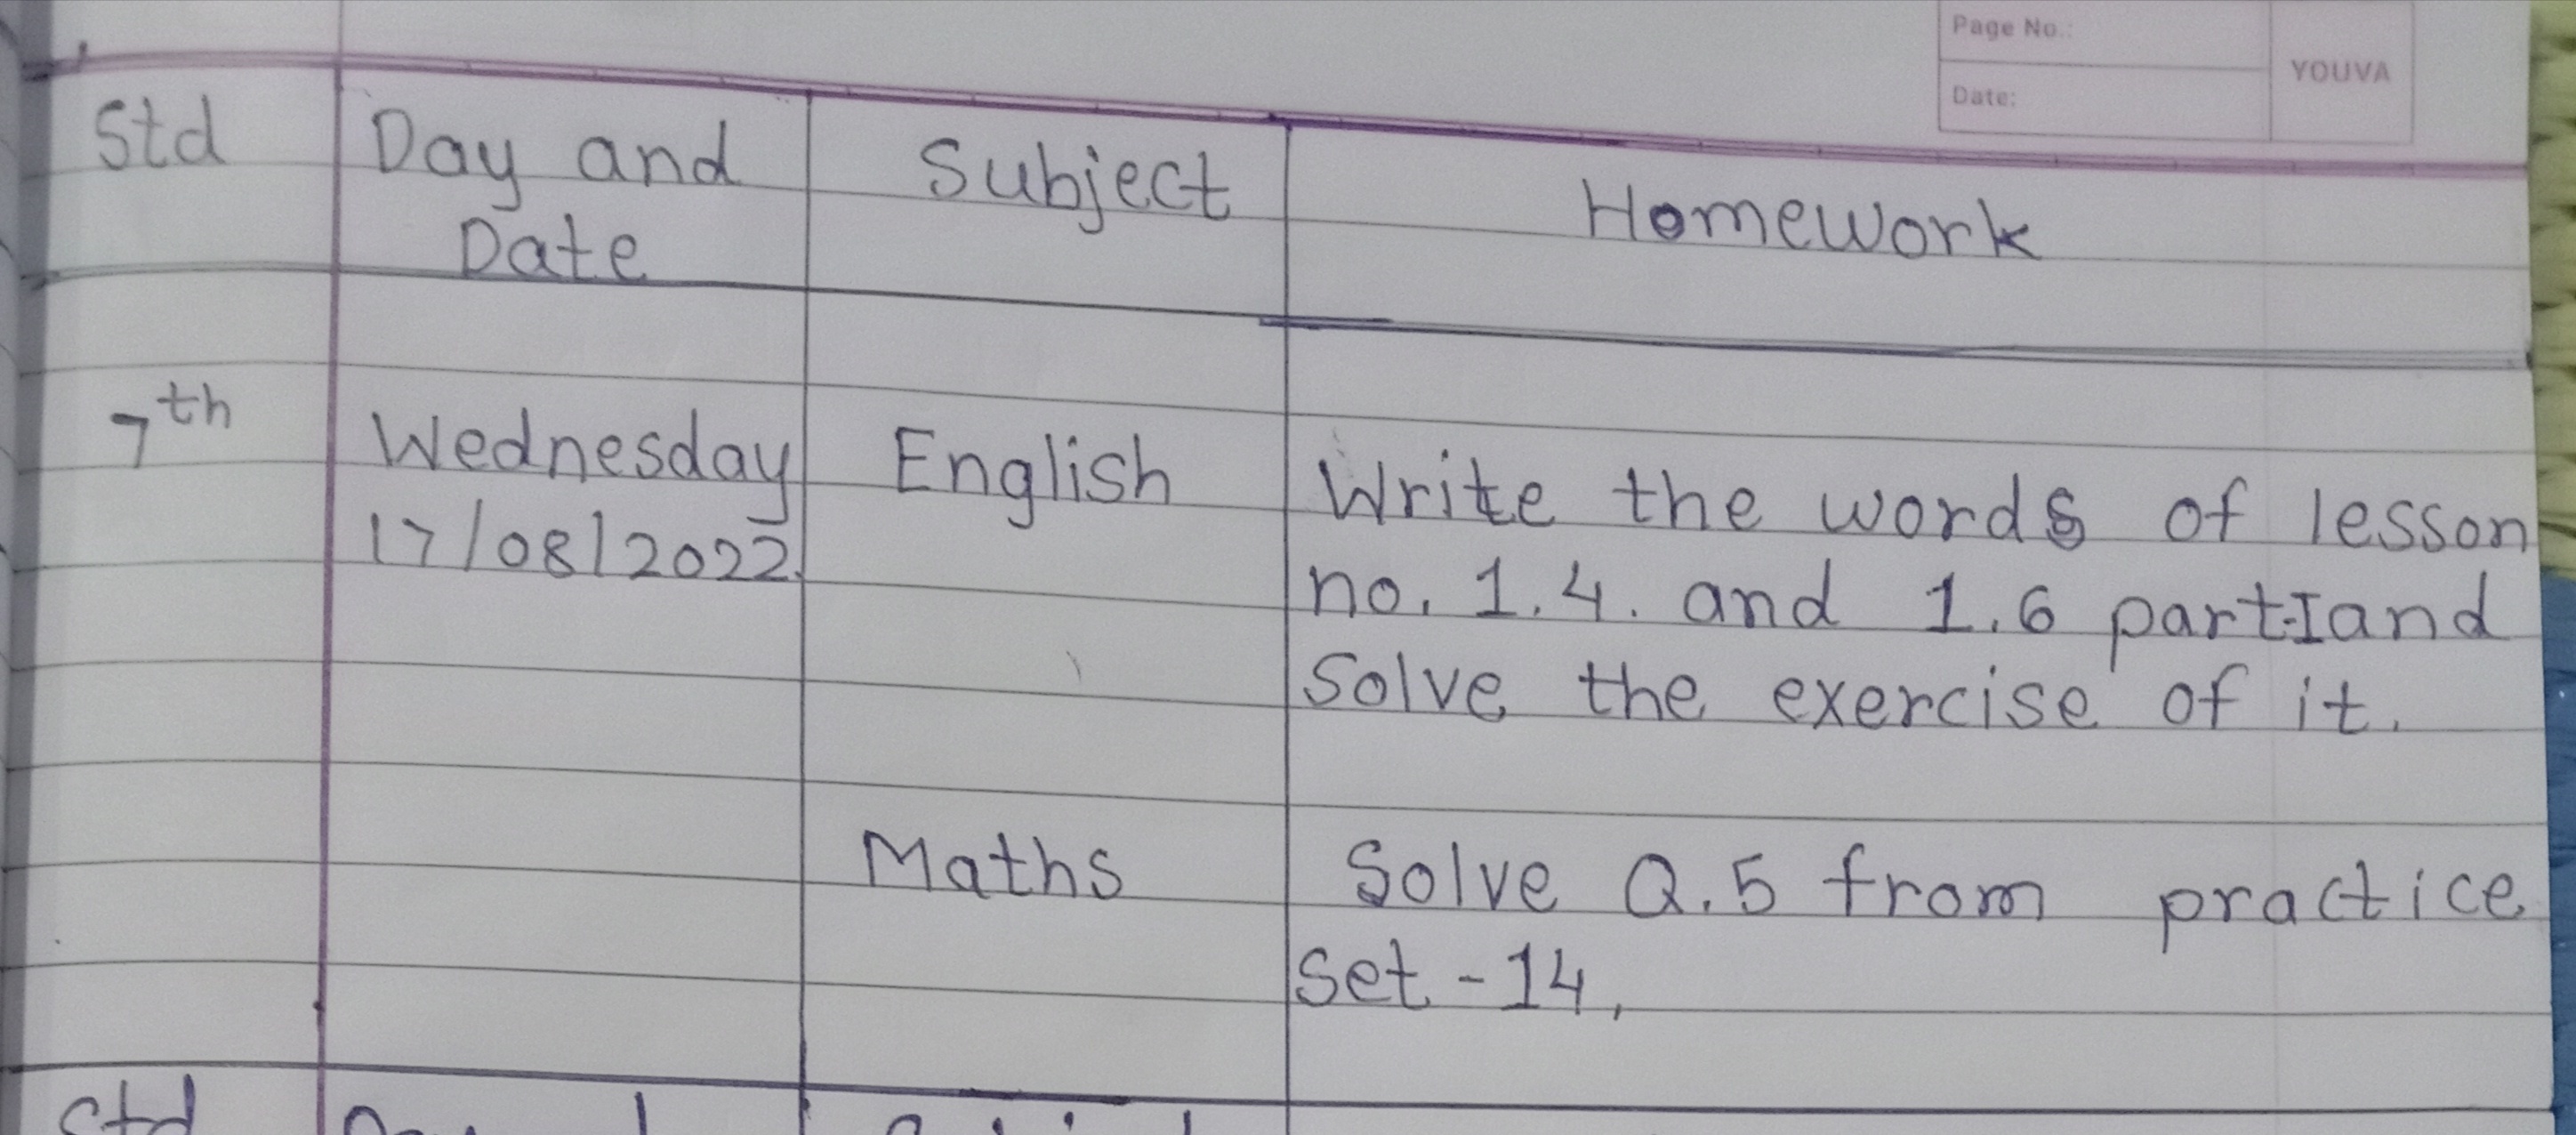 Page No.:
YOUVA
Date:
Std Day and Subject Homework
Date
7th Wednesday English Write the words of lesson
17/08/2022 no. 1.4. and 1.6 part-I and
Solve the exercise of it.
Maths Solve Q.5 from practice
Set - 14,
Std